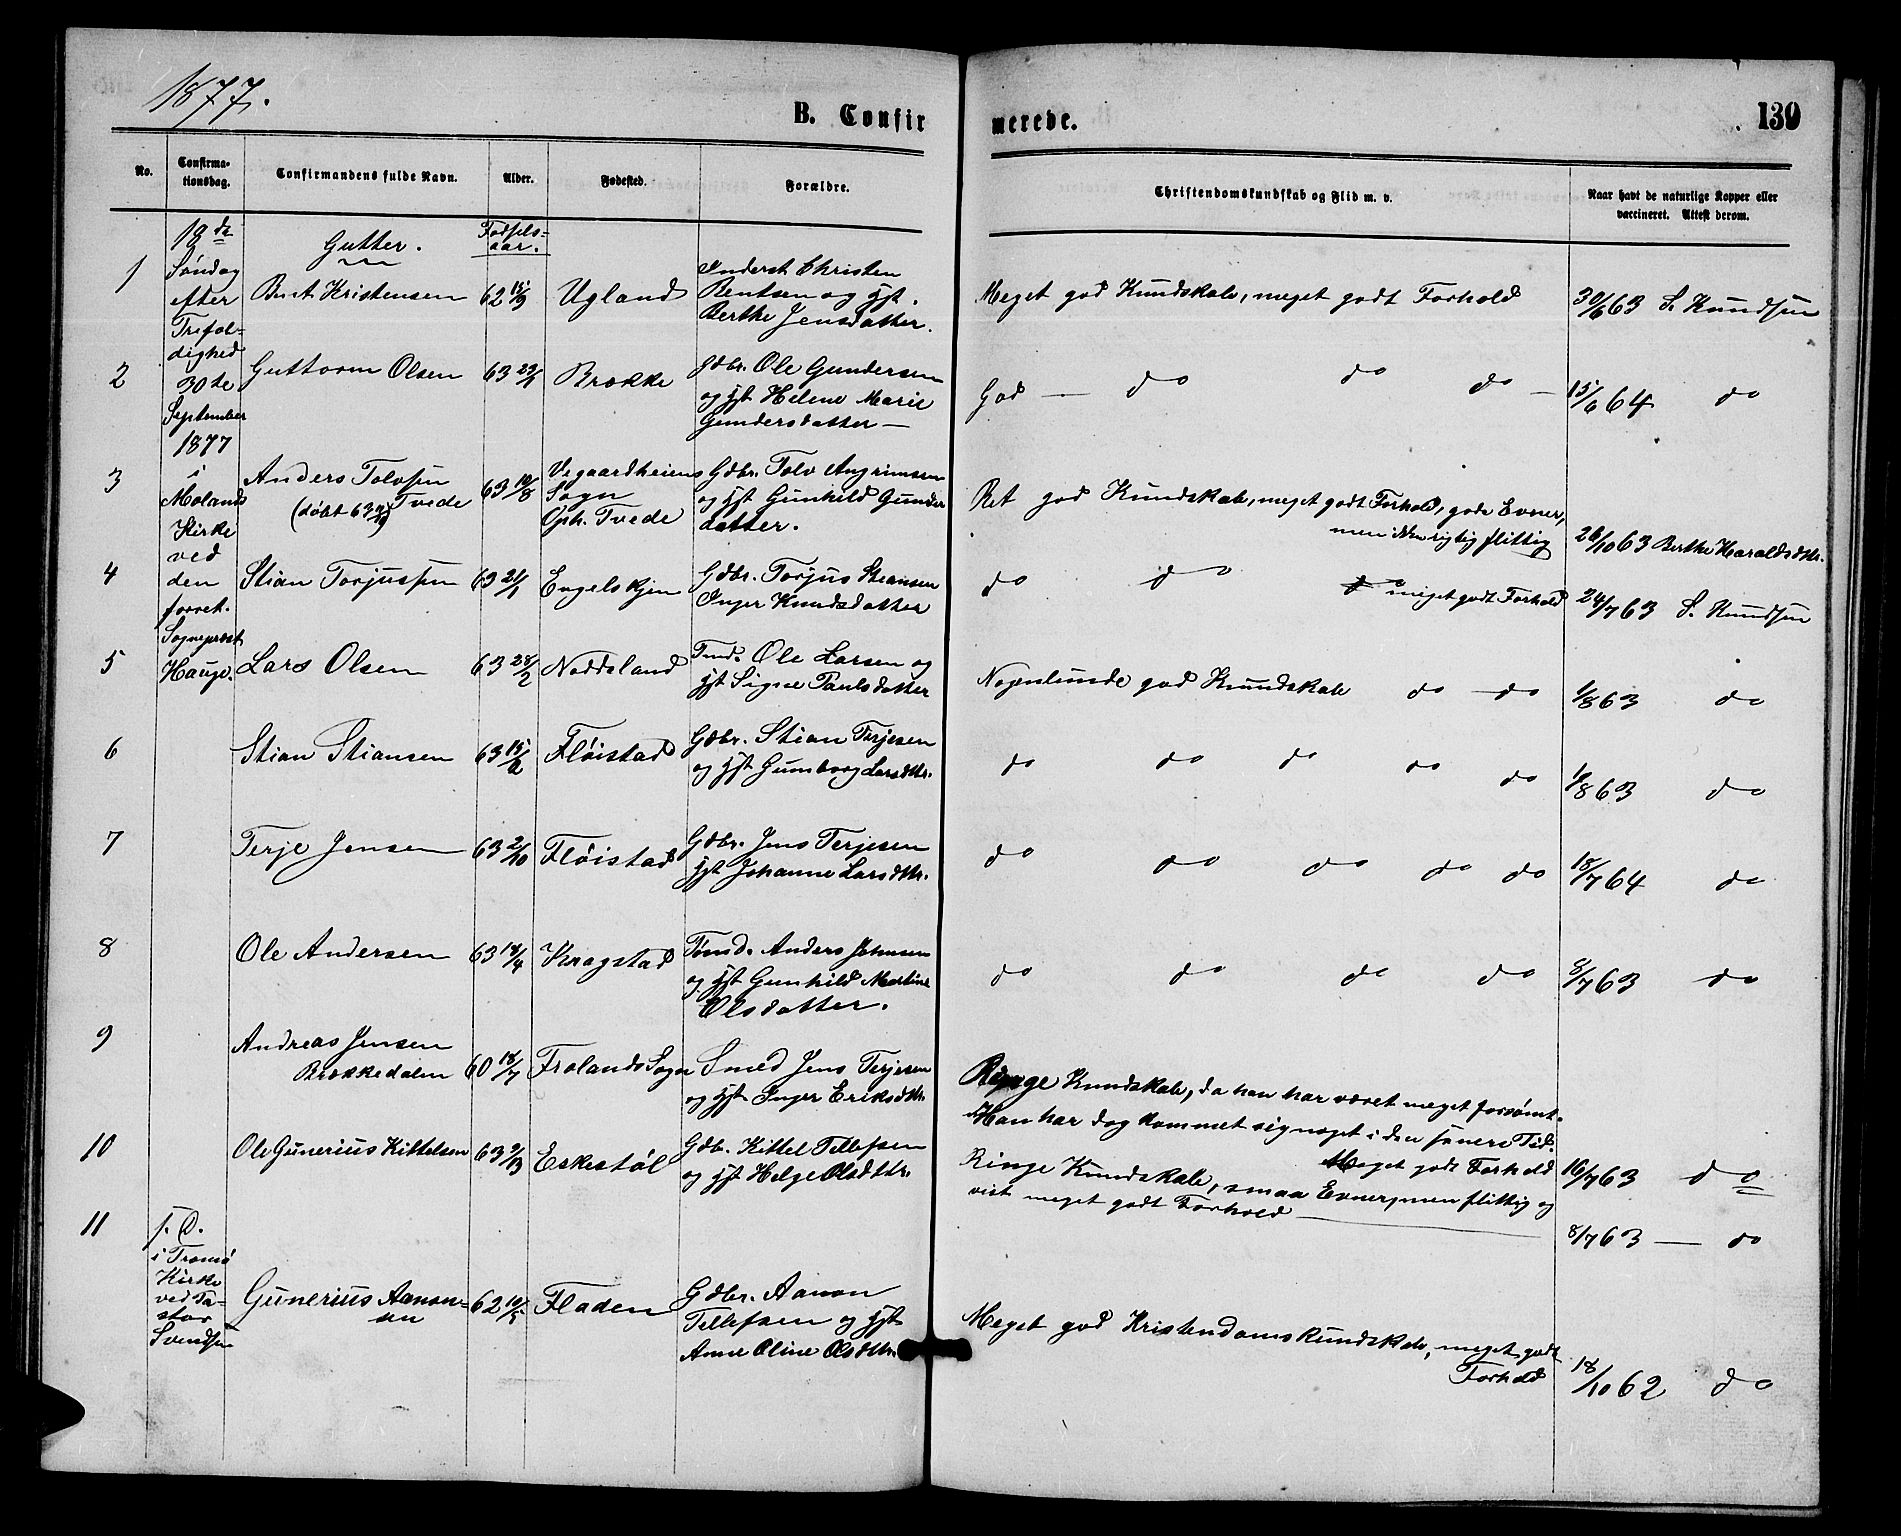 1877.
B. Confirmerede.
130
No.
Confirma-
tionsdag.
Confirmandens fulde Navn.
Alder.
Fødested.
Forældre.
Christendomskundskab og Flid m. v.
Naar havt de naturlige Kopper eller
vaccineret. Attest derom.
18de
Søndag
efter
Trefol-
dighed
30te
September
1877
i
Molands
Kirke
ved
den
forret.
Sognepræst
Hauge.
Gutter.
Fødsels-
aar.
1
Bent Kristensen
62 15/9
Ugland
Inderst Christen
Bentsen og hst.
Berthe Jensdatter.
Meget god Kundskab, meget godt Forhold
30/6 63 S. Knudsen
2
Guttorm Olsen
63 29/1
Brække
Gdbr. Ole Gundersen
og hst Helene Marie
Gundersdatter —
God — do do do —
15/6 64 do
3
Anders Tolvsen
(døbt 63) Tvede
63 10/8
Vegaardheiens
Sogn
Oph. Tvede
Gdbr. Tolv Angrimsen
og hst Gunhild Gunder
datter.
Ret god Kundskab, meget godt Forhold, gode Evner,
men ikke rigtig flittig
26/10 63 Berthe Haraldsdtr.
4
Stian Torjussen
63 21/1
Engelskjen
Gdbr. Torjus Steansen
Inger Knudsdatter
do do meget godt Forhold
24/7 63 S. Knudsen
5
Lars Olsen
63 28/2
Neddsland
Ole Larsen og
hst Signe Paulsdatter
Nogenlunde god Kundskab do do
1/8 63 do
6
Stian Stiansen
63 15/2
Fløistad
Gdbr. Stian Terjesen
og hst Gumborg Larsdtr.
do do do do do
1/8 63 do
7
Terje Jensen
63 2/10
Fløistad
Gdbr. Jens Terjesen
hst Johanne Larsdtr.
do do do do do
18/7 64 do
8
Ole Andersen
63 18/4
Kragstad
Tømd. Anders Johnsen
og hst Gunhild Martine
Olsdatter.
do do do do
8/7 63 do
9
Andreas Jensen
Brækkedalen
60 18/7
Frolands Sogn
Smed Jens Terjesen
og hst Inger Eriksdtr.
Ringe Kundskab, da han har været meget forsømt.
Han har dog kommet sig noget i den senere Tid.
Meget godt Forhold
16/7 63 do
10
Ole Gunerius Kittelsen
63 9/3
Eskestøl
Gdb. Kittel Tellefsen
og hst Helge Olsdtr.
Ringe Kundskab, smaa Evner, men flittig og
vist meget godt Forhold
8/7 63 — do
11
s. D.
i Tromø
Kirke
ved Pa-
stor
Svendsen
Gunerius Aanon-
sen
62 10/5
Fladen
Gdbr. Aanon
Tellefsen og hst
Anne Oline Olsdtr.
Meget god Kristendomskundskab, meget godt
Forhold
18/10 62 do